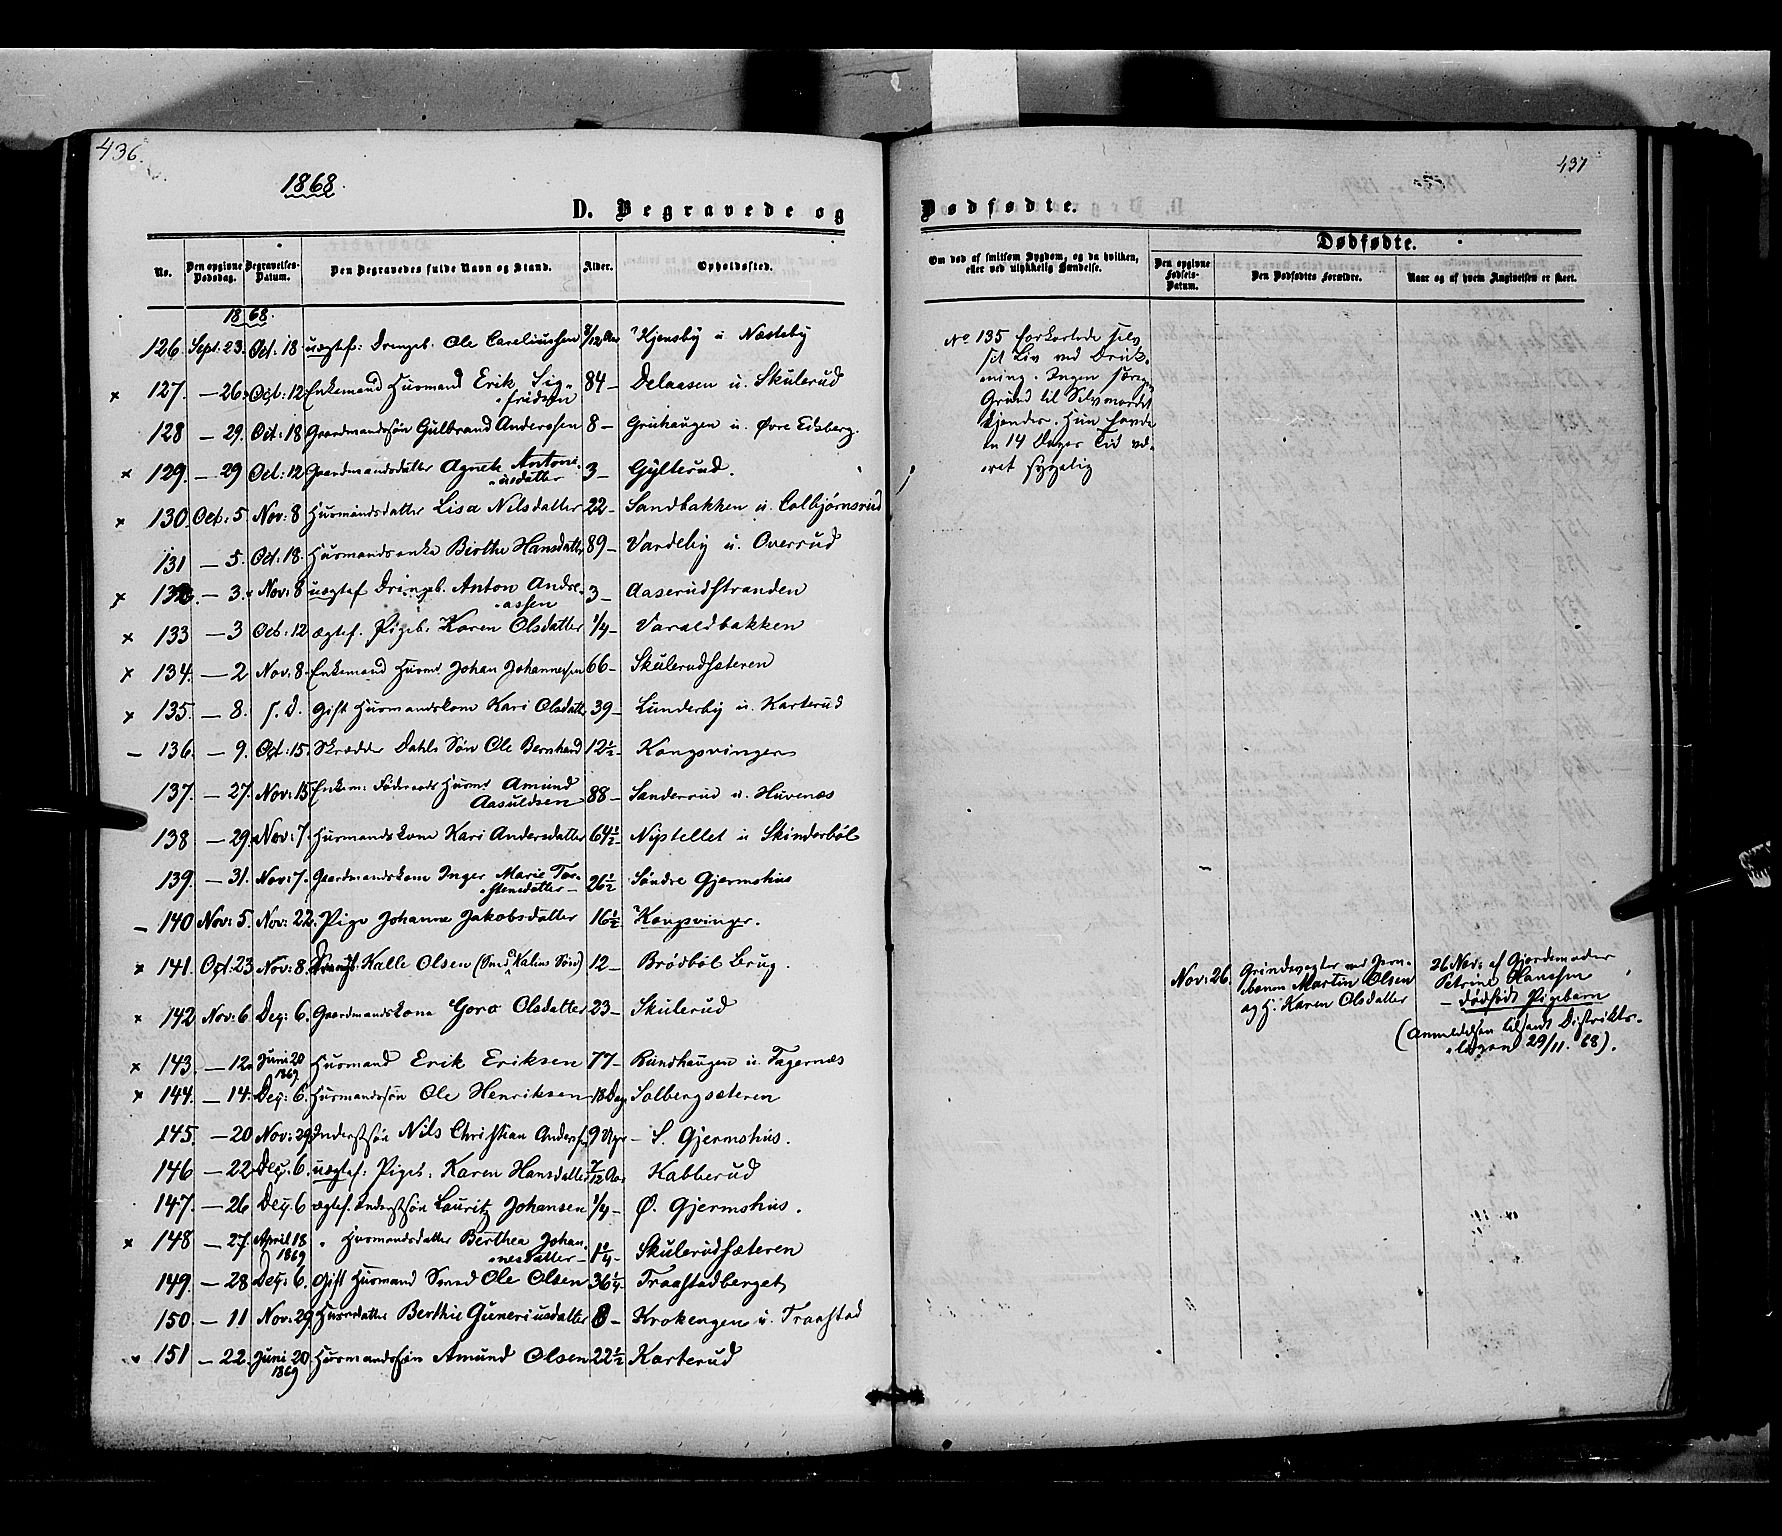 436.
1868.
D. Begravede og
No. Den opgivne Dødsdag. Begravelses-Datum. Den Begravedes fulde Navn og Stand. Alder. Opholdssted.
1868.
126 Sept: 23. Oct: 18 uægtef: Drengeb. Ole Careliussen 3/12 Aar Kjensby u Næsteby
x 127. — 26. Oct: 12 Enkemand Husmand Erik Sig-
fridsen 84 — Delaasen u. Skulerud
128 — 29. Oct: 18 Gaardmandssøn Gulbrand Anderssen 8 — Gruhaugen u. Øvre Edsberg.
x 129. — 29 Oct: 12 Gaardmandsdatter Agnete Antoni-
usdatter 3 — Gylterud.
x 130 Oct: 5 Nov: 8 Husmandsdatter Lisa Nilsdatter 22 — Sandbakken u. Colbjørnsrud
131 — 5. Oct: 18. Husmandsenke Birthe Hansdatter 89 — Vardeby u. Overrud
x 132. — 3. Nov: 8 uægtef Drengeb. Anton Andre-
assen 3 — Aaserudstranden
x 133 — 3 Oct: 12 ægtef. Pigeb: Karen Olsdatter 1/4 — Varaldbakken
x 134. — 2 Nov: 8. Enkemand Husmd Johan Johannessen 66 — Skulerudsæteren
x 135. — 8. s. d. Gift Husmandskone Kari Olsdatter 39 — Lunderby u. Karterud
— 136 — 9. Oct: 15. Skrædder Dahls Søn Ole Bernhard 12½ — Kongsvinger
137. — 27. Nov: 15 Enkem: Føderaads Husmd Amund
Aasuldsen 88 — Sanderud u. Huvenæs
138 — 29. Nov: 7. Husmandskone Kari Andersdatter 64½ Nystellet u Skinderböl
139. — 31. Nov: 7. Gaardmandskone Inger Marie Tor-
stensdatter — 26½ Søndre Gjermshus
— 140 Nov: 5. Nov: 22. Pige Johanne Jakobsdatter 16½ Kongsvinger.
x 141. Oct: 23 Nov: 8. Drengb: Kalle Olsen (Smed Kalles Søn) 12 — Brödböl Brug.
x 142 Nov: 6 Dec: 6. Gaardmandskone Goro Olsdatter 23 — Skulerud
x 143. — 12. Juni 20
1869 Husmand Erik Eriksen 77 — Rundhaugen u. Tagernæs
x 144. — 14. Dec: 6. Husmandssøn Ole Henriksen 18 Dag Solbergsæteren
145. — 20 Nov: 29. Inderstsøn Nils Christian Anders. 9 Uger — S. Gjermshus.
146 — 22. Dec. 6. uægtef: Pigeb: Karen Hansdatter 7/12 Aar Kabberud
147. — 26 Dec. 6 ægtef. Inderstsøn Lauritz Johansen 1/4 — Ø. Gjermshus.
x 148 — 27. April 18
1869 " Husmandsdatter Berthea Johan-
nesdatter — 1¼ — Skulerudsæteren
149. — 28 Dec: 6. Gift Husmand Smed Ole Olsen 36¼ — Traastadberget
150. — 11 Nov: 29. Husmdatter Berthie Guneriusdatter 8 — Krokengen u. Traastad
151 — 22. Juni 20
1869 Husmandssøn Amund Olsen 22½ Karterud
437
Dødfødte.
Om død af smitsom Sygdom, og da hvilken, eller ved ulykkelig Hændelse.
Dødfødte.
Den opgivne Fødsels-Datum. Den Dødfødtes Forældre. Naar og af hvem Angivelsen er skeet.
No 135 forkortede selv
sit Liv ved Druk-
ning. Ingen særegen
Grund til Selvmordet
kjendes. Hun havde
en 14 Dages Tid væ-
ret sygelig
Nov: 26. Grindevogter ved Jern-
banen Martin Olsen
og H. Karen Olsdatter
26 Nov: af Gjordemoder
Petrine Hansen
— dødfødt Pigebarn
(Anmeldelsen tilsendt Distrikts-
lægen 29/11. 68).